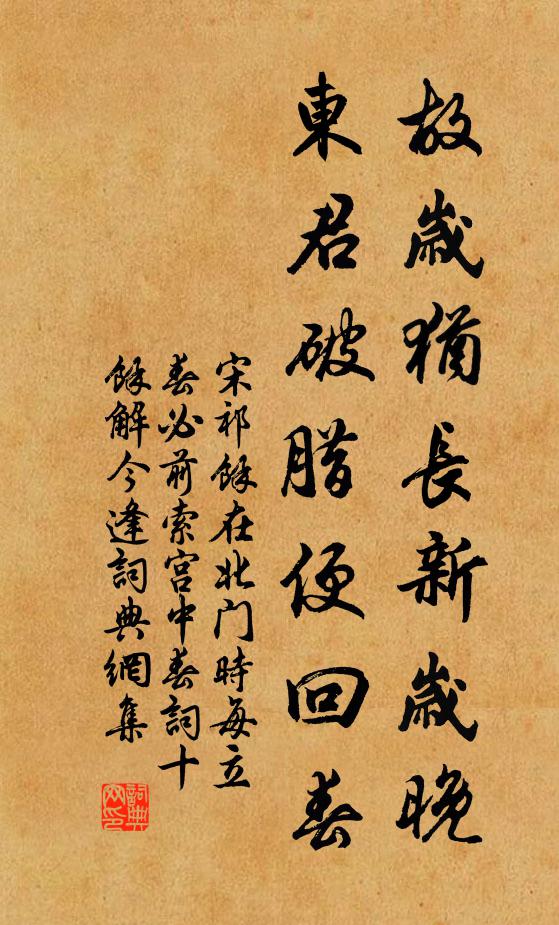 故歲猶長新歲晚
東君破腊便回春
宋祁餘在北门時每立
春必前索宫中春詞十
餘解今逢詞典網集
詞典网印